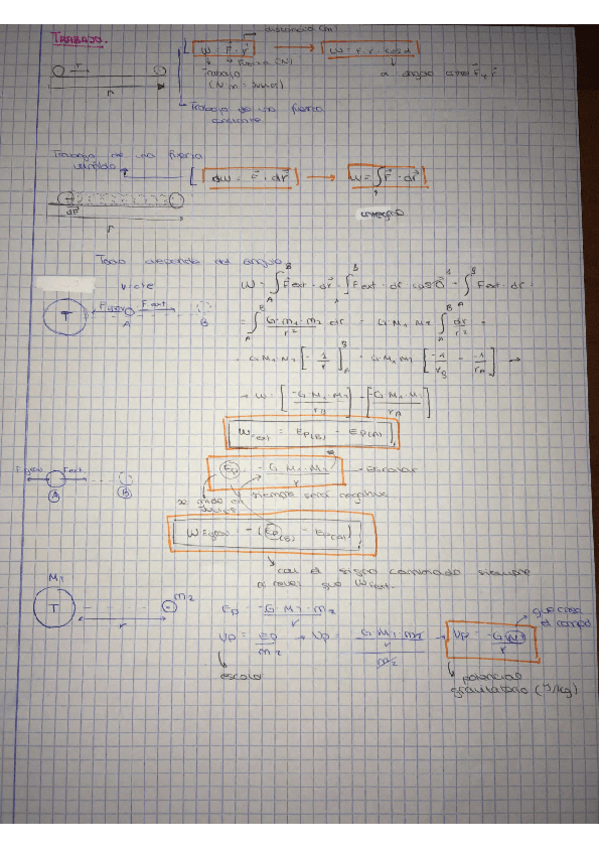 TRABAJO.
distancia (m)
W = F⃗ · r⃗ → W = F · r · cos α
Fuerza (N)
Trabajo
(N·m = Julio)
α ángulo entre F⃗ y r⃗
r
Trabajo de una fuerza
constante
Trabajo de una fuerza
dW = F⃗ · dr⃗ → W = ∫ F⃗ · dr⃗
dr⃗
r
Todo depende del ángulo
W = ∫_A^B F⃗ext · dr⃗ = ∫_A^B Fext · dr · cos 0 = ∫_A^B Fext · dr =
T Fgrav Fext A B
= ∫_A^B G · M₁ · M₂ / r² dr = G M₁ M₂ ∫_A^B dr / r² =
= G M₁ M₂ [ - 1 / r ]_A^B = G M₁ M₂ [ -1 / r_B - -1 / r_A ] →
→ W = [ -G · M₁ · M₂ / r_B ] - [ -G M₁ M₂ / r_A ]
W Fext = Ep(B) - Ep(A)
Ep = -G M₁ · M₂ / r → Escalar
Fgrav Fext
A B
siempre será negativa
W Fgrav = - (Ep(B) - Ep(A))
con el signo cambiado siempre
que W Fext.
M₁
T r m₂
Ep = -G · M₁ · m₂ / r
Vp = Ep / m₂ → Vp = G M₁ · m₂ / r / m₂ → Vp = -G M₁ / r
que crea
el campo
escalar
potencial
gravitatorio (J/kg)